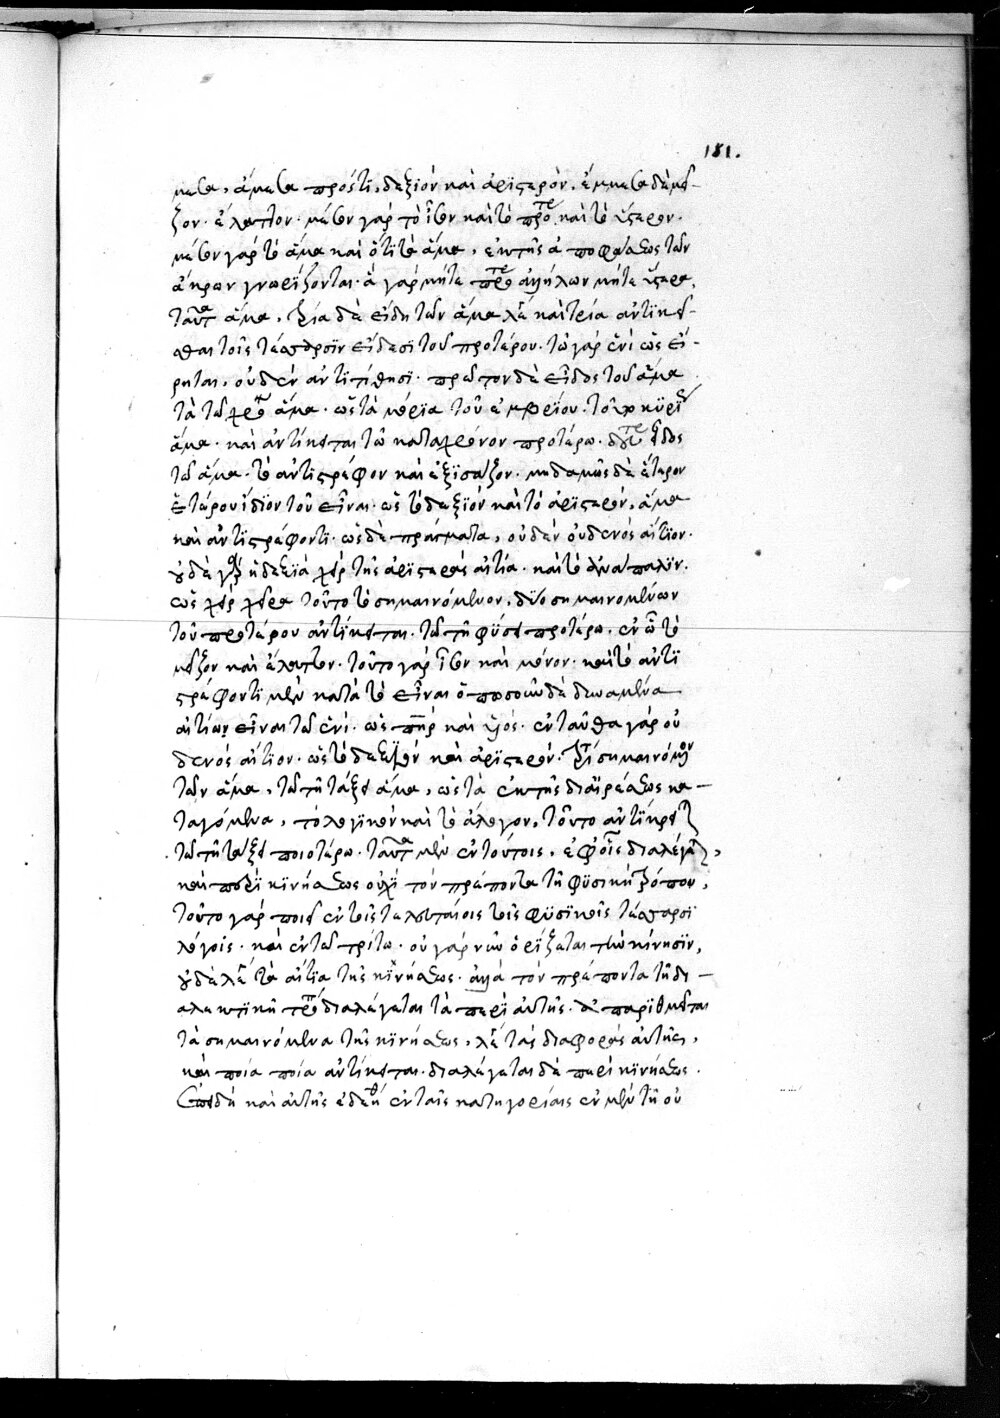 181.
μεσα, ἄμεσα πρόστι, δεξιόν καὶ ἀριστερόν. ἔμμεσα δὲ μεῖ-
ζον. ἔλαττον. μέσον γάρ τὸ ἴσον καὶ τὸ πρότε καὶ τὸ ὕστερον.
μέσον γάρ τὸ ἅμα καὶ ὅτι τὸ ἅμα, ἐκ τῆς ἀποφάσεως τῶν
ἄκρων γνωρίζονται. ἃ γάρ μήτε πρότε ἀλλήλων μήτε ὕστερα,
ταῦτα ἅμα, τρία δὲ εἴδη τῶν ἅμα καὶ τρία ἀντίκει-
ται τοῖς τέσσαρσιν εἴδεσι τοῦ προτέρου. τῶ γάρ ἑνὶ ὡς εἴ-
ρηται, οὐδέν ἀντιτίθησι. πρῶτον δὲ εἶδος τοῦ ἅμα
τὰ τῶ χρόνω ἅμα. ὡς τὰ μόρια τοῦ ἐμβρύου. κυρι
ἅμα. καὶ ἀντίκειται τῶ κατὰ χρόνον προτέρω. δεύτε εἶδος
τοῦ ἅμα. τὸ ἀντιστρέφον καὶ ἐξισάζον. μηδαμῶς δὲ ἕτερον
ἑτέρου αἴτιον τοῦ εἶναι. ὡς τὸ δεξιόν καὶ τὸ ἀριστερόν, ἅμα
καὶ ἀντιστρέφοντι. ὡς δὲ πράγματα, οὐδέν οὐδενός αἴτιον.
οὐδὲ γάρ ἡ δεξιὰ χεὶρ τῆς ἀριστερᾶς αἰτία. καὶ τὸ ἀνάπαλιν.
ὡς χεὶρ χεῖρα τοῦτο τὸ σημαινόμενον, δύο σημαινομένων
τοῦ προτέρου ἀντίκειται. τῶ τῇ φύσει προτέρω, ἐν ᾧ τὸ
μεῖζον καὶ ἔλαττον. τοῦτο γάρ ἴσον καὶ μόνον. καὶ τὸ ἀντι
στρέφοντι μὲν κατὰ τὸ εἶναι ὁπωσοῦν δὲ δυναμένω
αἰτίω εἶναι τῶ ἑνί. ὡς πηρ καὶ υἱός. ἐνταῦθα γάρ οὐ
δενός αἴτιον. ὡς τὸ δεξιόν καὶ ἀριστερόν. τρι σημαινόμενον
τῶν ἅμα, τῶ τῇ τάξει ἅμα, ὡς τὰ ἐκ τῆς διαιρέσεως κα-
ταγόμενα, τὸ λογικόν καὶ τὸ ἄλογον, τοῦτο ἀντίκειται
τῶ τῇ τάξει προτέρω. ταῦτα μὲν ἐν τούτοις, ἐφ' οἷς διαλέγεται,
καὶ περὶ κινήσεως οὐχὶ τόν πρέποντα τῇ φυσικῇ τρόπον,
τοῦτο γάρ ποιεῖ ἐν τοῖς τελευταίοις τοῖς φυσικοῖς τέσσαρσι
λόγοις. καὶ ἐν τῶ τρίτω. οὐ γάρ νῦν ὁρίζεται τὴν κίνησιν,
οὐδὲ τὰ αἴτια τῆς κινήσεως. ἀλλὰ τόν πρέποντα τῇ δι-
αλεκτικῇ διαλέγεται τὰ περὶ αὐτῆς. παριθμεῖται
τὰ σημαινόμενα τῆς κινήσεως, τὰς διαφοράς αὐτῆς,
καὶ ποία ποία ἀντίκειται. διαλέγεται δὲ περὶ κινήσεως.
ἐπειδὴ καὶ αὐτῆς ἐδεήθη ἐν ταῖς κατηγορίαις ἐν μὲν τῇ οὐ